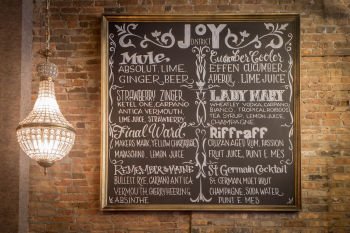 JOY
DISTRICT
Mule
ABSOLUT, LIME,
GINGER BEER
STRAWBERRY ZINGER
KETEL ONE, CARPANO
ANTICA VERMOUTH,
LIME JUICE, STRAWBERRY,
Final Ward
MAKERS MARK, YELLOW
MARASCHINO, LEMON JUICE
REMEMBER the MAINE
BULLEIT RYE, CARPANO ANTICA
VERMOUTH, CHERRY HEERING,
ABSINTHE
Cucumber Cooler
EFFEN CUCUMBER,
APEROL, LIME JUICE
LADY MARY
WHEATLEY VODKA, CARPANO
BIANCO, TROPICAL
TEA SYRUP, LEMON JUICE,
CHAMPAGNE
Riffraff
CRUZAN AGED RUM, PASSION
FRUIT JUICE, PUNT E MES
St Germain Cocktail
ST GERMAIN, MOET BRUT
CHAMPAGNE, SODA WATER,
PUNT E MES